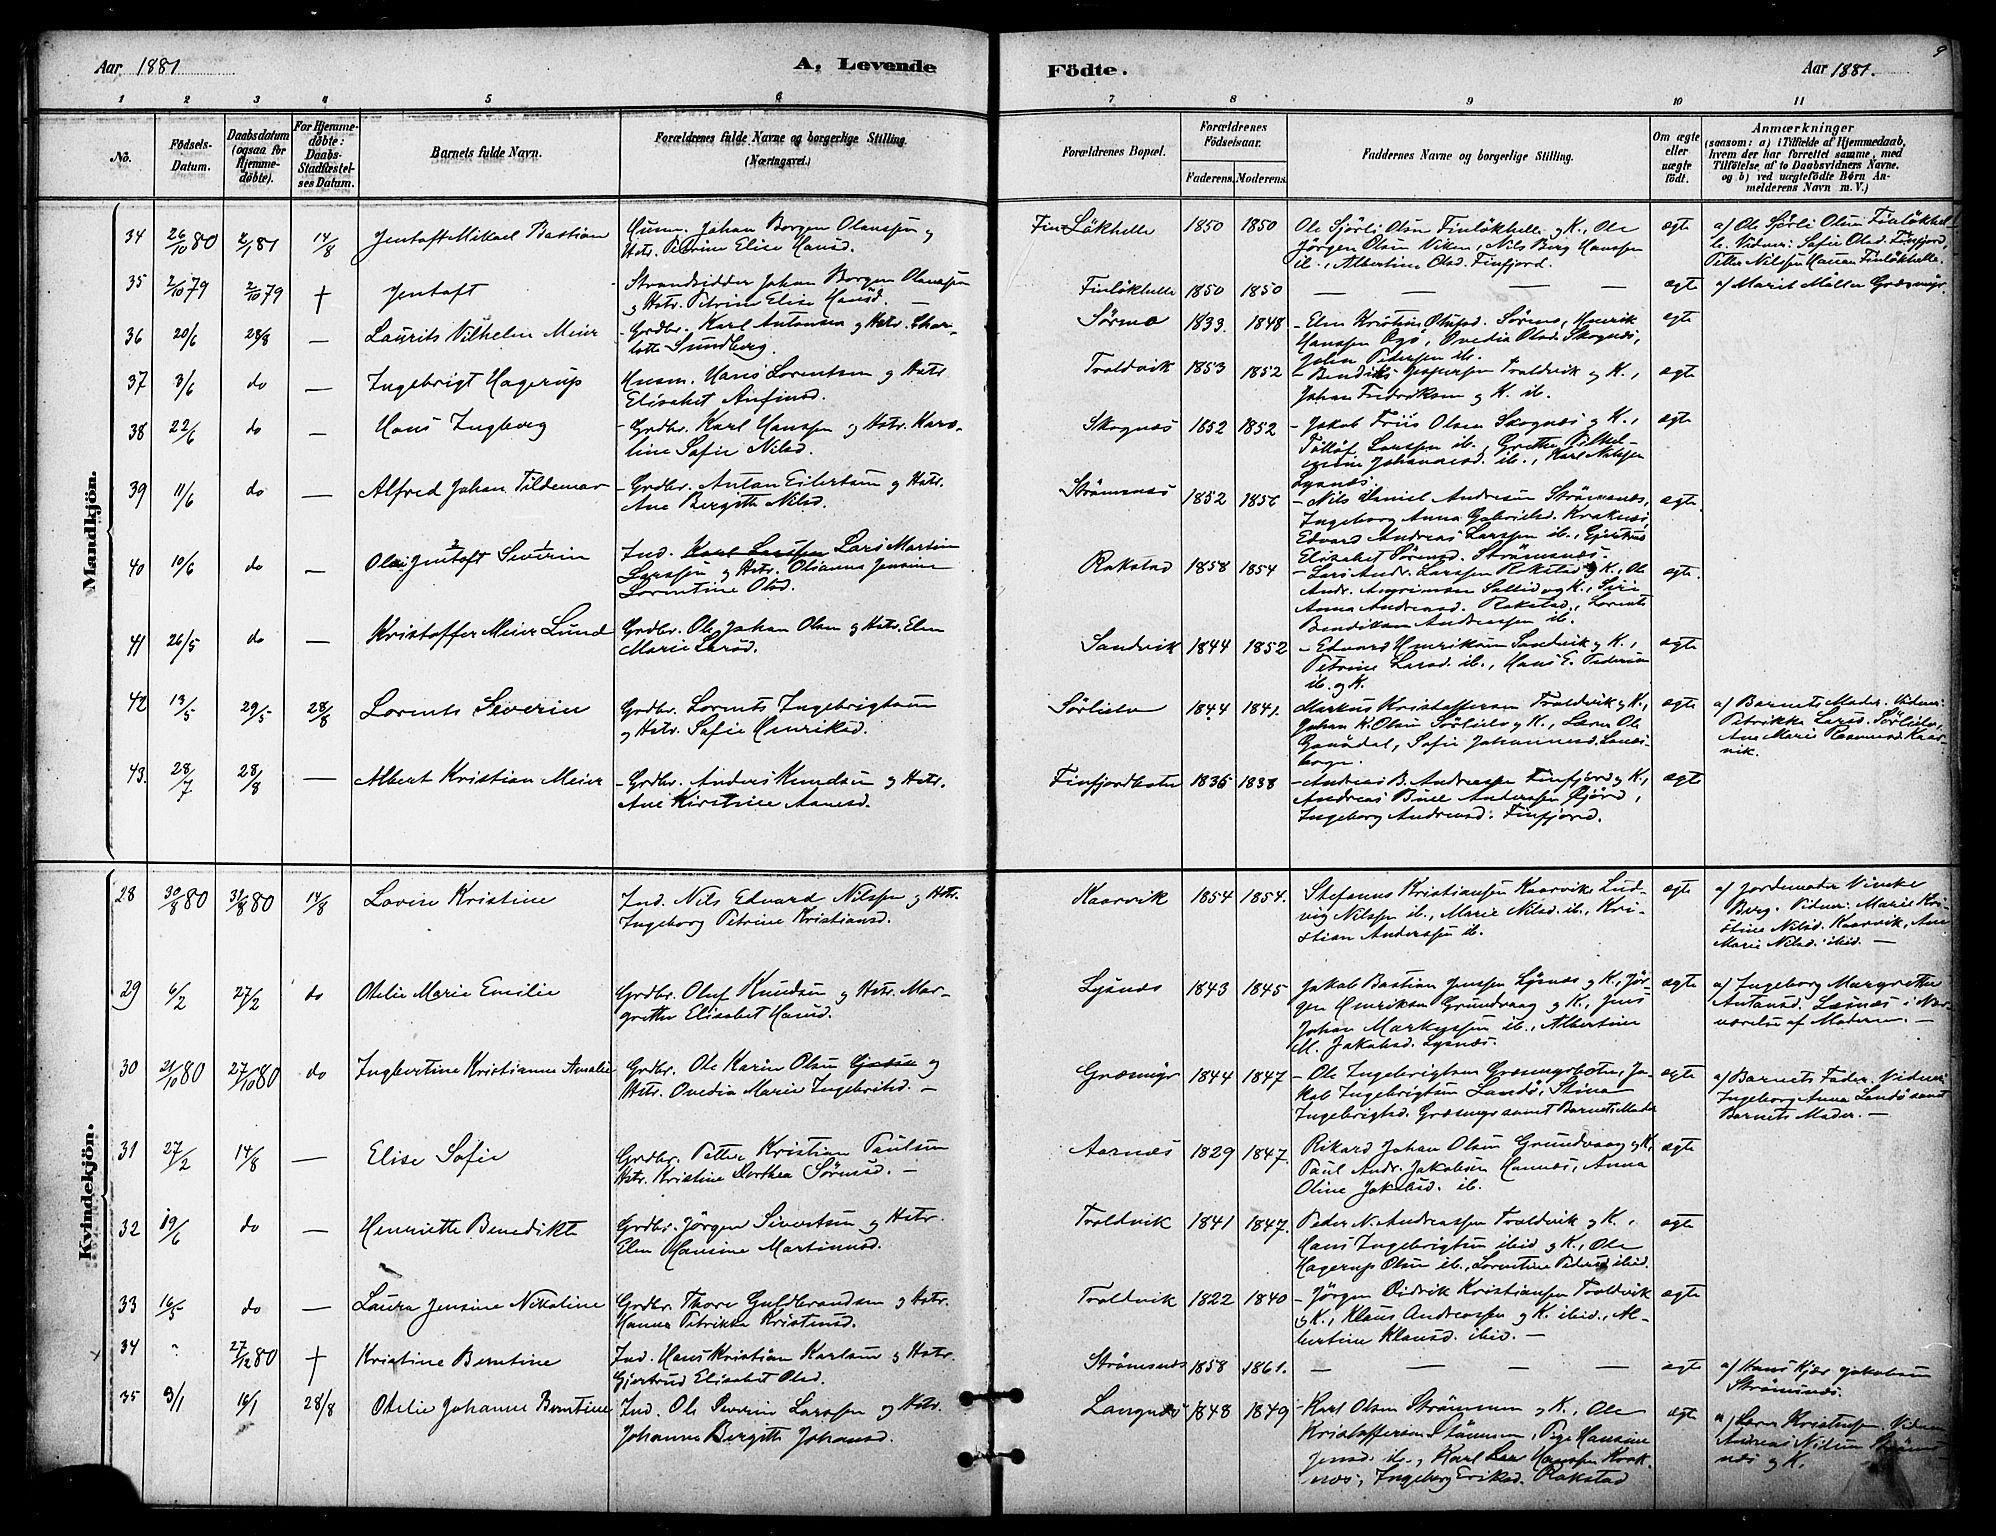 Aar 1881
A. Levende
Födte.
Aar 1881.
9
1 2 3 4 5 6 7 8 9 10 11
No.
Födsels-
Datum.
Daabsdatum
(ogsaa for
Hjemme-
døbte).
For Hjemme-
døbte:
Daabs-
Stadfæstel-
ses Datum.
Barnets fulde Navn.
Forældrenes fulde Navne og borgerlige Stilling.
(Næringsvei.)
Forældrenes Bopæl.
Forældrenes
Födselsaar.
Faderens. Moderens.
Faddernes Navne og borgerlige Stilling.
Om ægte
eller
uægte
født.
Anmærkninger
(saasom: a) i Tilfælde af Hjemmedaab,
hvem der har forrettet samme, med
Tilföielse af to Daabsvidners Navne.
og b) ved uægtefødte Børn An-
melderens Navn m. V.)
Mandkjön.
34 26/10 80 2/1 81 14/8 Jentoft Mikael Bastian
Husm. Johan Borgen Olaussen og
Hstr. Petrine Elise Hansd.
Finlökhelle 1850 1850
Ole Sjörli Olsen Finlökhelle og K., Ole
Jörgen Olsen Viken, Nils Berg Hanssen
ib., Albertine Olsd. Finfjord.
ægte
a) Ole Sjörli Olsen Finlökhel-
le. Vidner: Sofie Olsd. Finfjord,
Petter Nilssen Hansen Finlökhelle.
35 2/10 79 2/10 79 † Jentoft
Strandsidder Johan Borgen Olaussen
og Hstr. Petrine Elise Hansd.
Finlökhelle 1850 1850 — — — — ægte a) Marit Möller Græsmyr.
36 20/6 28/8 — Laurits Vilhelm Meier
Grdbr. Karl Antonsen og Hstr. Char-
lotte Sundberg.
Sörmo 1833. 1848
Elen Kristine Olufsd. Sörmo, Henrik
Hanssen Ogs, Ovedia Olsd. Skognæs,
Johan Pedersen ib.
ægte
37 3/6 do — Ingebrigt Hagerup
Husm. Hans Lorentsen og Hstr
Elisabet Anfinsd.
Troldvik 1853 1852
Bendiks Jespersen Troldvik og K.,
Johan Fredriksen og K. ib.
ægte
38 22/6 do — Hans Ingberg
Grdbr. Karl Hanssen og Hstr. Karo-
line Sofie Nilsd.
Skognæs 1852 1852
Jakob Friis Olsen Skognæs og K.,
Larssen ib., Grethe Vilhel-
mine Johannesd. ib., Karl Nilssen
Lysnæs.
ægte
39 11/6 do — Alfred Johan Tildemar
Grdbr. Anton Eilertsen og Hstr.
Ane Bergitte Nilsd.
Strömsnæs 1852 1856
Nils Daniel Andresen Strömsnæs,
Ingeborg Anna Gabrielsd. Kraknæs,
Edvard Andreas Larssen ib., Gjertrud
Elisabet Sörensd. Strömsnæs.
ægte.
40 10/6 do — Olai Jentoft Severin
Ind. Karl Larssen Lars Martin
Larssen og Hstr. Olianna Jensine
Lorentine Olsd.
Rakstad 1858 1854
Lars Andr. Larssen Rakstad og K., Ole
Andr. og K., Siri
Anna Andreasd. Rakstad, Lorents
Bendiksen Andreassen ib.
ægte.
41 26/5 do — Kristoffer Meier Lund
Grdbr. Ole Johan Olsen og Hstr. Elen
Marie Larsd.
Sandvik 1844 1852
Edvard Henriksen Sandvik og K.,
Petrine Larsd. ib., Hans E. Pedersen
ib. og K.
ægte
42 13/5 29/5 28/8 Lorents Severin
Grdbr. Lorents Ingebrigtsen
og Hstr. Sofie Henriksd.
Sörlielv 1844 1841.
Markus Kristoffersen Troldvik og K.,
Johan K. Olsen Sörlielv og K.,
Sofie Johannesd.
ægte
a) Barnets Moder. Vidner:
Petrikke Larsd. Sörlielv,
Ane Marie Rasmusd. Kaar-
vik.
43. 28/7 28/8 — Albert Kristian Meier
Grdbr. Anders Knudsen og Hstr.
Ane Kirstine Aanesd.
Finfjordbotn 1836 1838
Andreas B. Andreassen Finfjord og K.,
Andreas Buel Anderssen Gjörd,
Ingeborg Andreasd. Finfjord.
ægte
Kvindekjön.
28 30/8 80 31/8 80 14/8 Lovise Kristine
Ind. Nils Edvard Nilssen og Hstr.
Ingeborg Petrine Kristiansd.
Kaarvik 1854 1854.
Stefanus Kristianssen Kaarvik, Lud-
vig Nilssen ib., Marie Nilsd. ib., Kri-
stian Anderssen ib.
ægte
a) Jordemoder Vincke
Berg. Vidner: Marie Kri-
stine Nilsd. Kaarvik, Ane
Marie Nilsd. ibid. —
29 6/2 27/2 do Otelie Marie Emilie
Grdbr. Oluf Knudsen og Hstr. Mar-
grethe Elisabet Hansd.
Lysnæs 1843 1845
Jakob Bastian Jenssen Lysnæs og K., Jör-
gen Henriksen Grundvaag og K., Jens
Johan Markussen ib., Albertine
M. Jakobsd. Lysnæs.
ægte
a) Ingeborg Margrethe
Antonsd. Lysnæs i Nær-
værelse af Moderen. —
30 21/10 80 27/10 80 do Ingbertine Kristianne Amalie
Grdbr. Ole Karin Olsen og
Hstr. Ovedia Marie Ingebritsd. —
Græsmyr 1844 1847
Ole Ingebrigtsen Græsmyrbotn, Ja-
kob Ingebrigtsen Sandö, Stina
Ingebrigtsd. Græsmyr samt Barnets Moder
ægte
a) Barnets Fader. Vidner:
Ingeborg Anna Sandö samt
Barnets Moder. —
31 27/2 14/8 — Elise Sofie
Grdbr. Petter Kristian Paulsen
Hstr. Kristine Dorthea Sörensd. —
Aarnæs 1829 1847.
Rikard Johan Olsen Grundvaag og K.
Paul Andr. Jakobsen Hannæs, Anna
Oline Jakobsd. ib.
ægte
32 19/6 do — Henriette Benedikte
Grdbr. Jörgen Sivertsen og Hstr.
Elen Hansine Martinusd.
Troldvik 1841 1847.
Peder N. Andreassen Troldvik og K.,
Hans Ingebrigtsen ibid og K., Ole
Hagerup Olsen ib., Lorentine Pedersd. ibid.
ægte
33 16/5 do — Laura Jensine Nikoline
Grdbr. Thore Guldbrandsen og Hstr.
Hanna Petrikke Kristensd.
Troldvik 1822 1840
Jörgen Didrik Kristianssen Troldvik
og K., Klaus Andreassen og K. ibid., Al-
bertine Klausd. ibid. —
ægte
34 " 27/12 80 † Kristine Berntine
Ind. Hans Kristian Karlsen og Hstr.
Gjertrud Elisabet Olsd.
Strömsnæs 1858 1861. — — — — ægte
a) Hans Kjær Jakobsen
Strömsnæs.
35 9/1 16/1 28/8 Otelie Johanne Berntine
Ind. Ole Severin Larssen og Hstr.
Johanne Bergitte Johansd.
Langnæs 1848 1849
Karl Olsen Strömmen og K., Ole
Kristoffersen Strömmen, Hansine
Jensd. ib., Karl Hanssen Krak-
næs, Ingeborg Eriksd. Rakstad
ægte
a) Kristensen, Vidner
Andreas Nilsen Ströms-
næs og K.